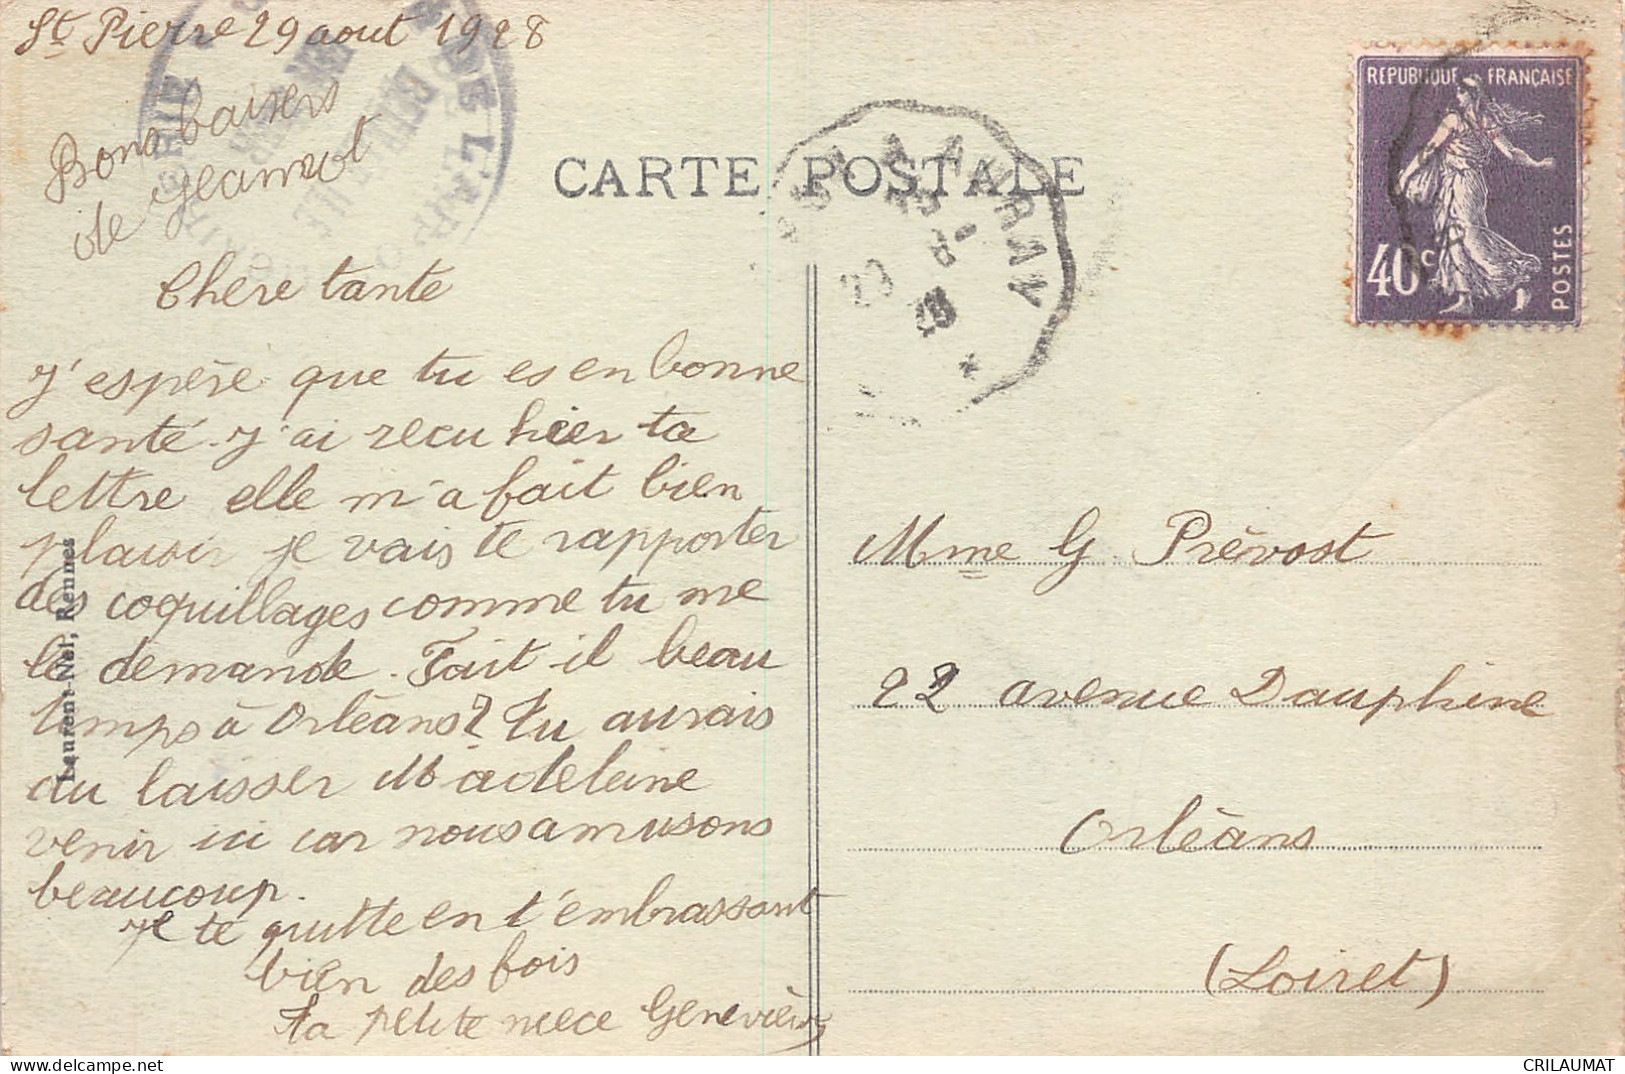 St Pierre 29 aout 1928
Bons baisers
de Jeannot
CARTE POSTALE
REPUBLIQUE FRANÇAISE
40c
POSTES
A AURAY
Chère tante
J'espère que tu es en bonne
santé. J'ai recu hier ta
lettre elle m'a fait bien
plaisir je vais te rapporter
des coquillages comme tu me
le demande. Fait-il beau
temps à Orléans? Tu aurais
du laisser Madeleine
venir ici car nous amusons
beaucoup.
Je te quitte en t'embrassant
bien des fois
Ta petite niece Geneviève
Laurent-Nel, Rennes
Mme G. Prévost
22 avenue Dauphine
Orléans
(Loiret)
CRILAUMAT